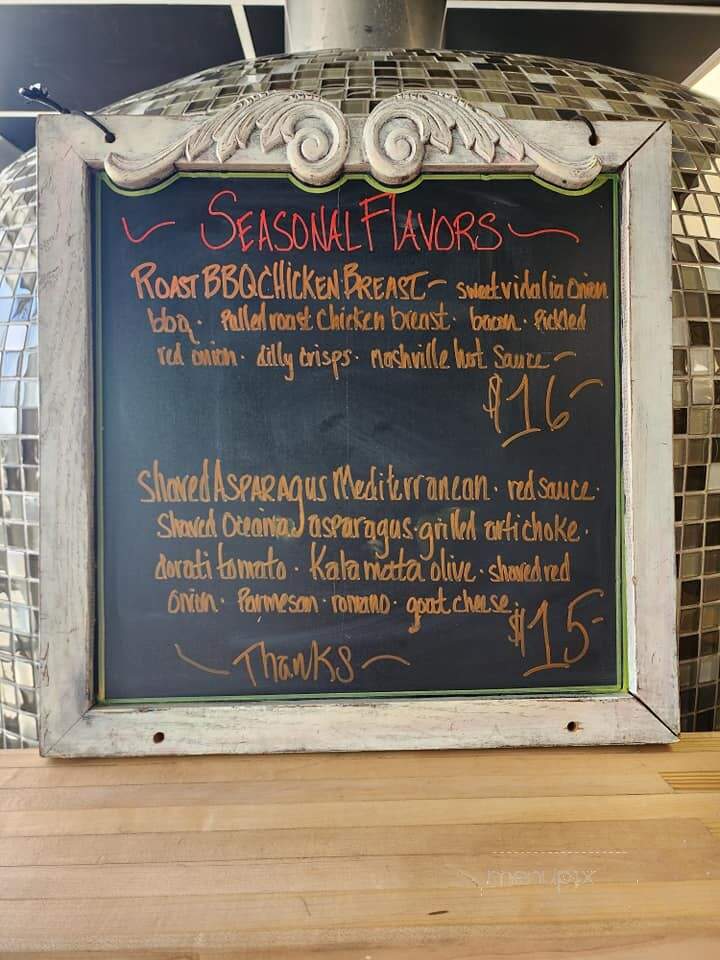 SEASONAL FLAVORS
ROAST BBQ CHICKEN BREAST - sweet vidalia onion
bbq · Pulled roast chicken breast · bacon · Pickled
red onion · dilly crisps · nashville hot sauce -
$16-
Shaved ASPARAGUS Mediterranean · red sauce ·
Shaved asparagus · grilled artichoke ·
tomato · Kalamata olive · shaved red
Onion · Parmesan · romano · goat cheese ·
$15-
Thanks
menupix